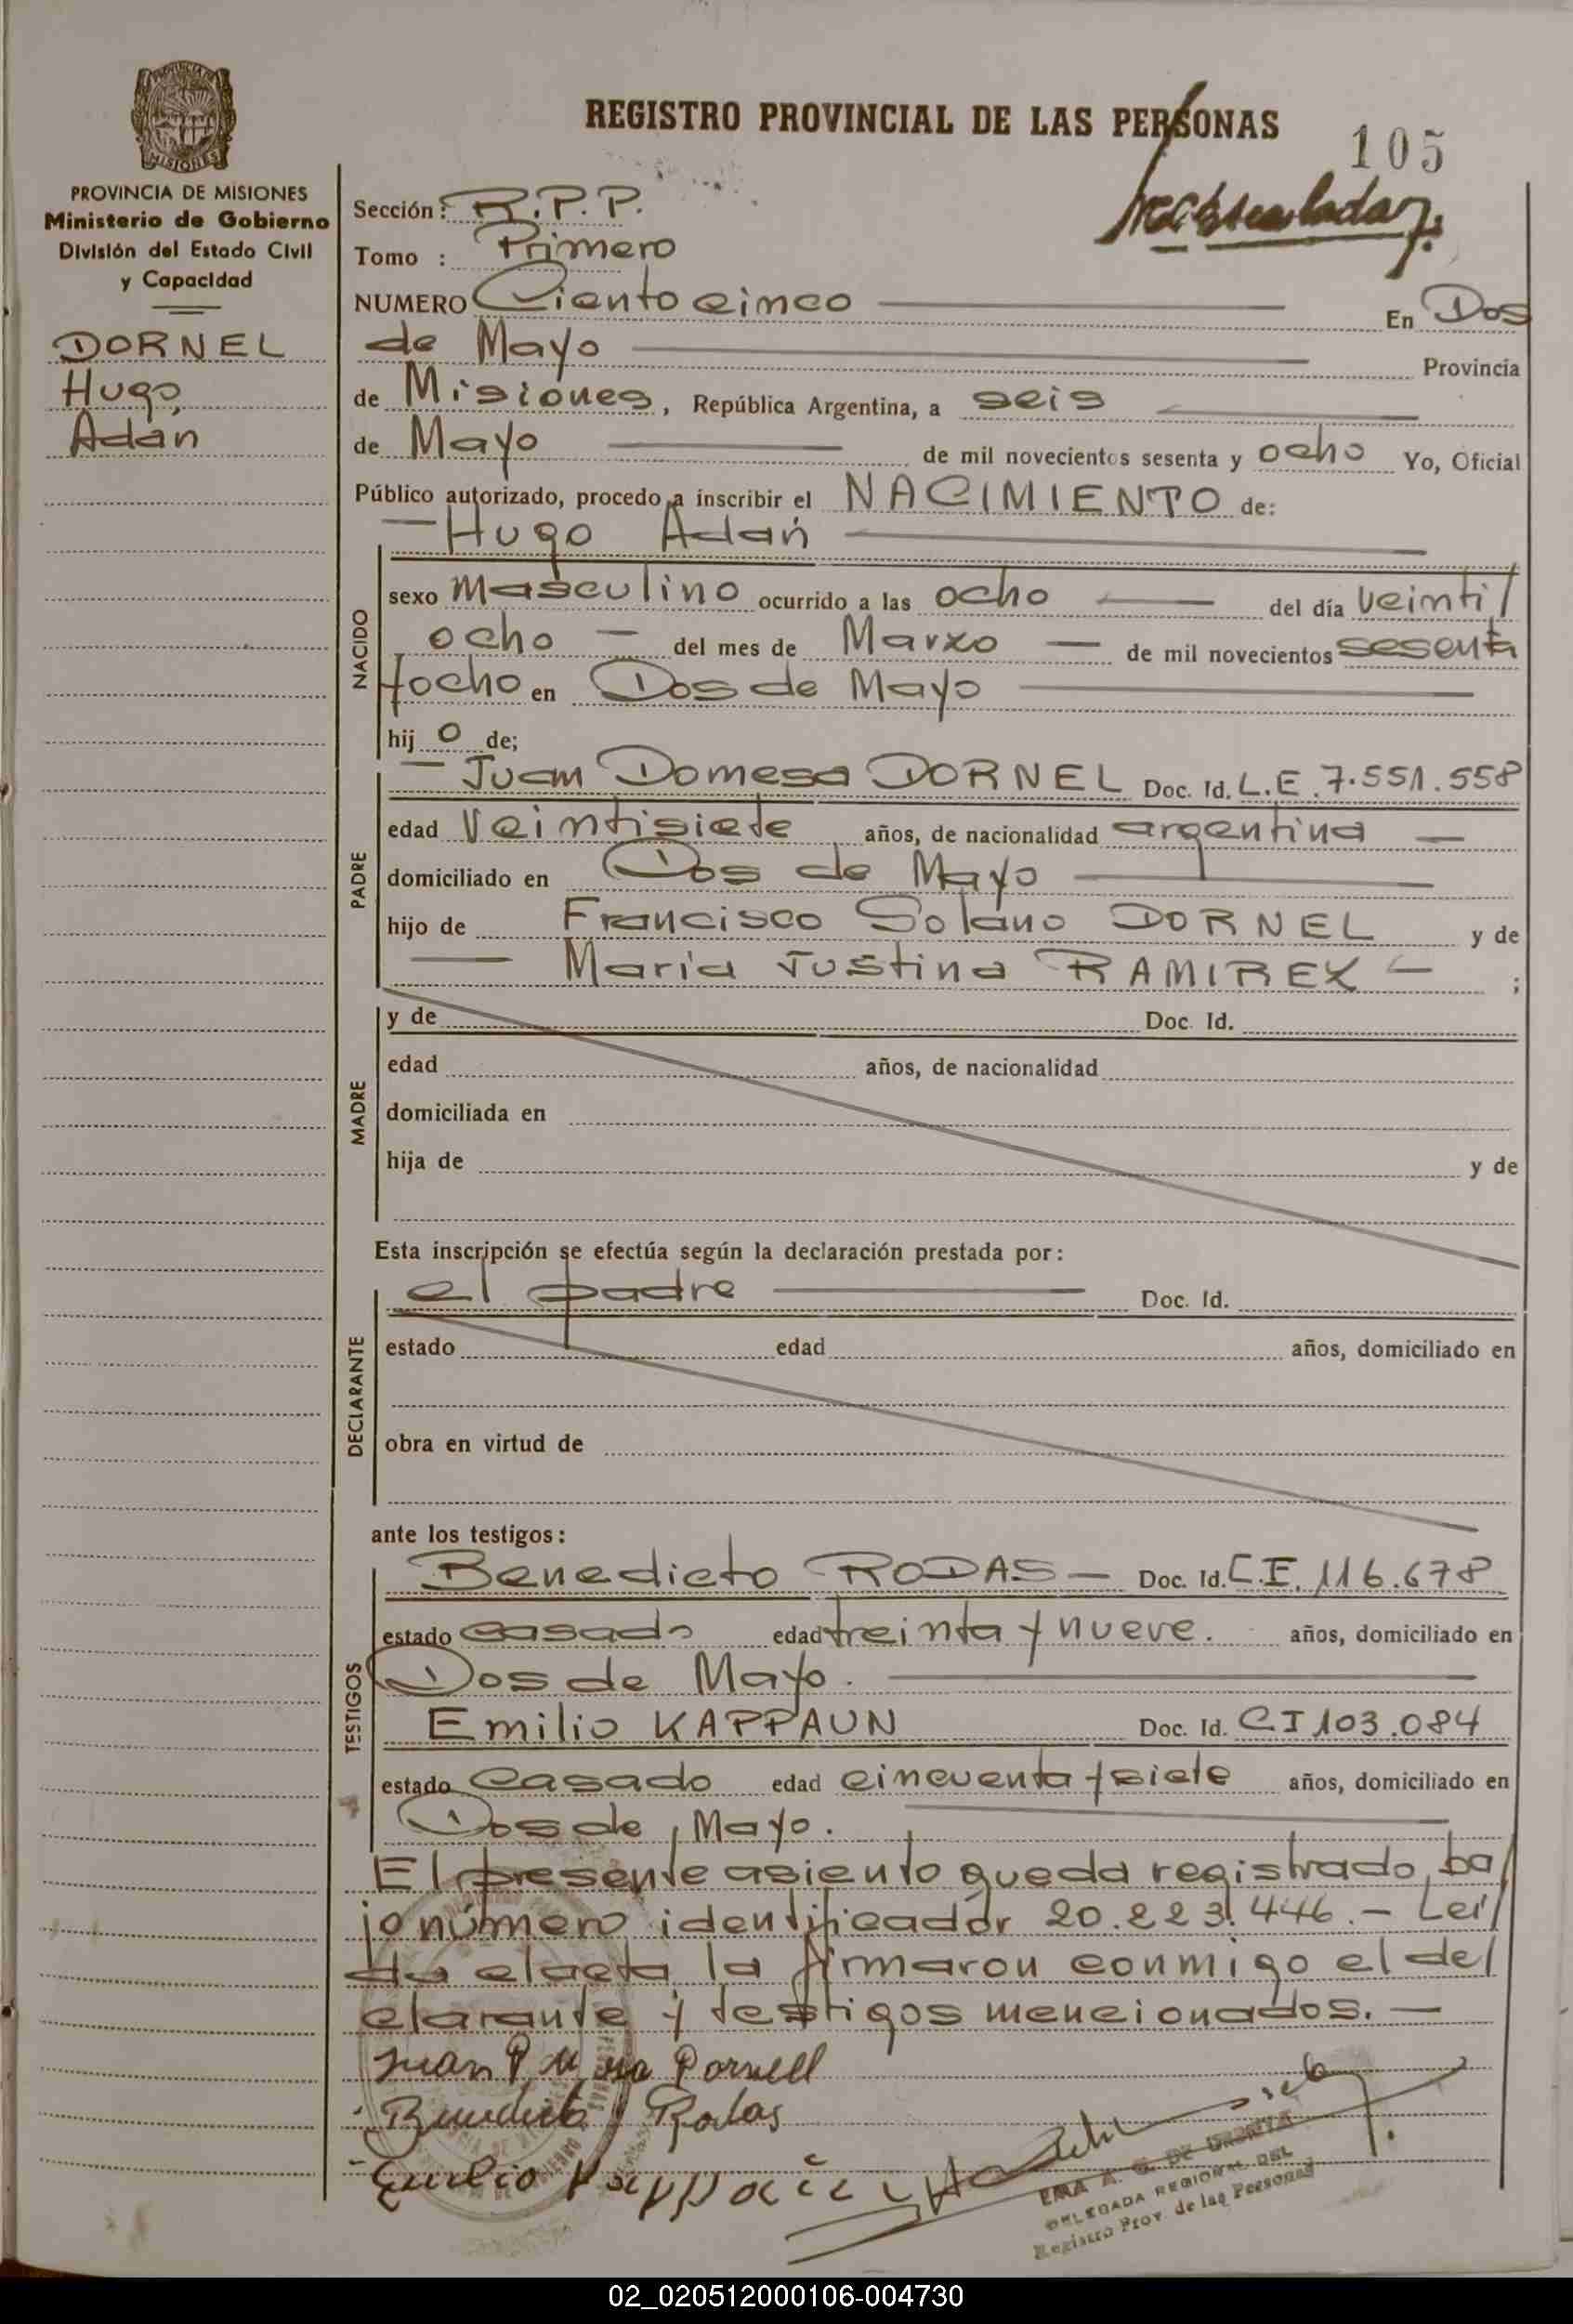 PROVINCIA DE MISIONES
Ministerio de Gobierno
División del Estado Civil
y Capacidad
DORNEL
Hugo
Adán
REGISTRO PROVINCIAL DE LAS PERSONAS
105
Sección: R.P.P.
Tomo : Primero
NUMERO Ciento cinco En Dos
de Mayo Provincia
de Misiones, República Argentina, a seis
de Mayo de mil novecientos sesenta y ocho Yo, Oficial
Público autorizado, procedo a inscribir el NACIMIENTO de:
Hugo Adán
NACIDO
sexo Masculino ocurrido a las ocho del día veinti/
ocho del mes de Marzo de mil novecientos sesenta
yocho en Dos de Mayo
hij o de;
PADRE
Juan Domesa DORNEL Doc. Id. L.E. 7.551.558
edad Veintisiete años, de nacionalidad argentina
domiciliado en Dos de Mayo
hijo de Francisco Solano DORNEL y de
María Justina RAMIREZ ;
MADRE
y de Doc. Id.
edad años, de nacionalidad
domiciliada en
hija de y de
Esta inscripción se efectúa según la declaración prestada por:
DECLARANTE
el padre Doc. Id.
estado edad años, domiciliado en
obra en virtud de
ante los testigos:
TESTIGOS
Benedicto RODAS Doc. Id. C.I. 116.678
estado casado edad treinta y nueve. años, domiciliado en
Dos de Mayo.
Emilio KAPPAUN Doc. Id. C.I 103.084
estado casado edad cincuenta y siete años, domiciliado en
Dos de Mayo.
El presente asiento queda registrado ba/
jo número identificador 20.223.446.- Leí/
da el acta la firmaron conmigo el de/
clarante y testigos mencionados.-
Juan Dornell
Benedicto Rodas
Emilio Kappaun
EMA A. G. DE URRUTIA
DELEGADA REGIONAL DEL
Registro Prov. de las Personas
02_020512000106-004730